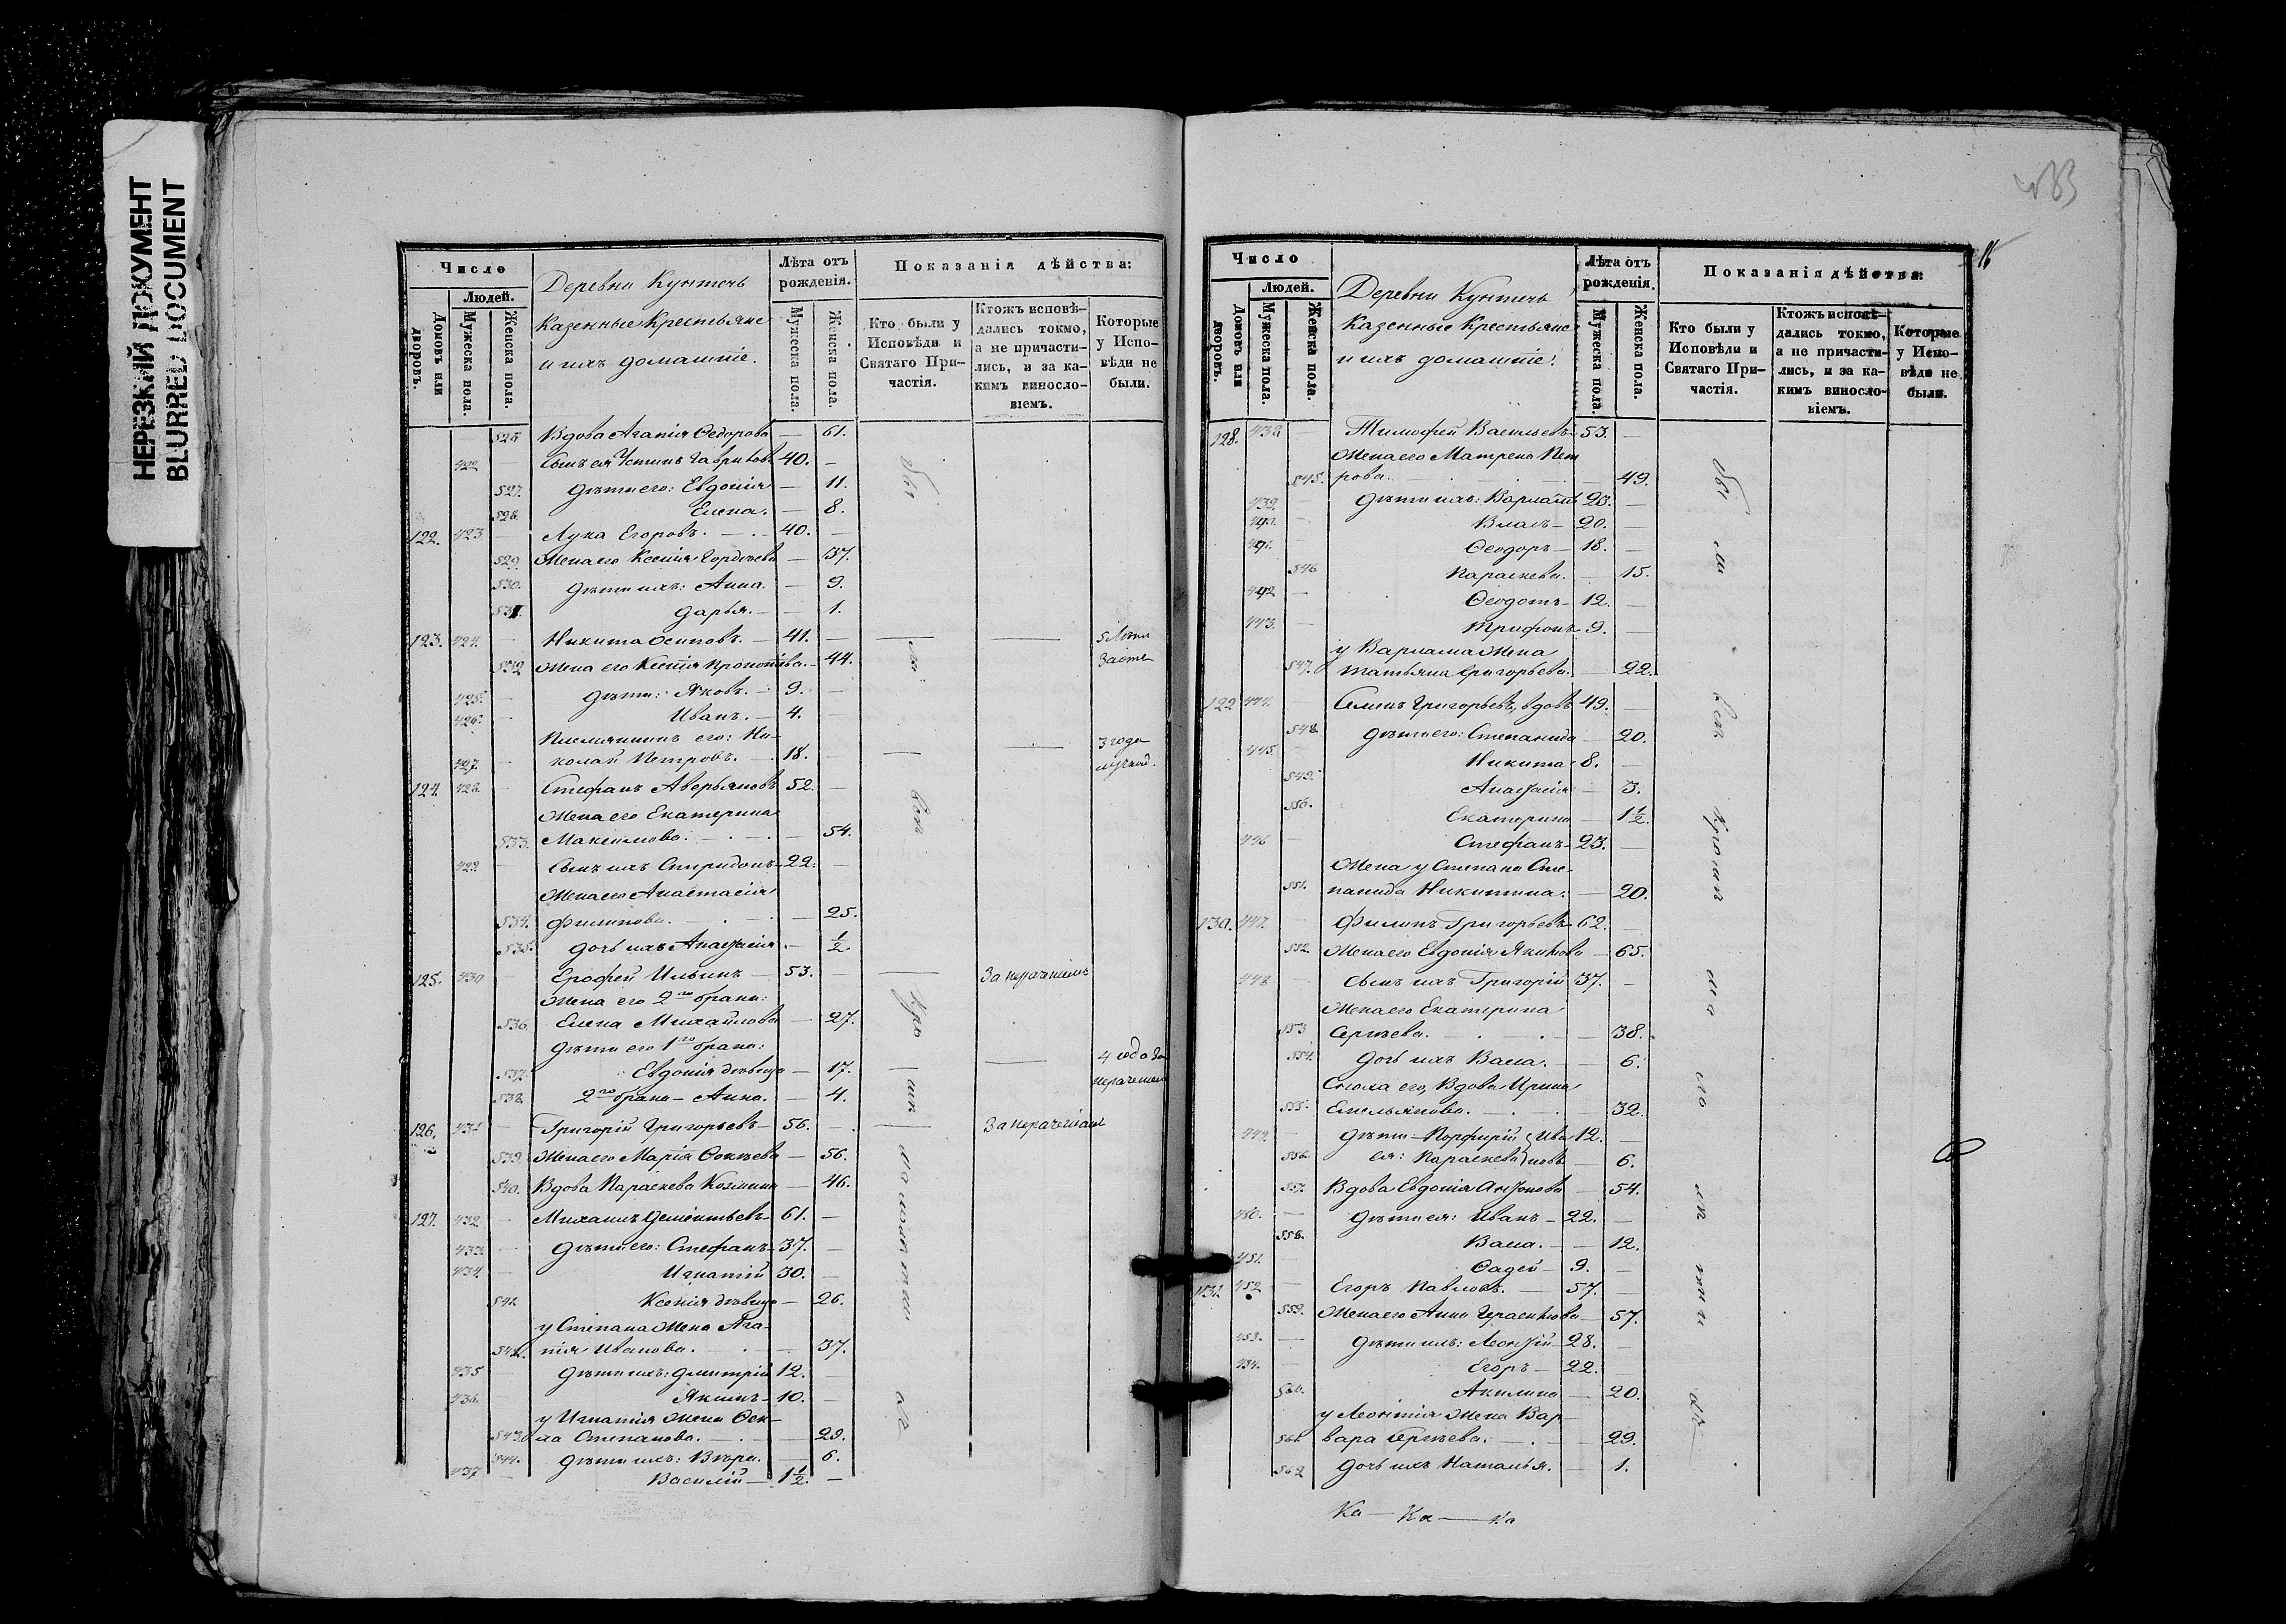 НЕРЕЗКИЙ ДОКУМЕНТ
BLURRED DOCUMENT
Число
Людей.
Домовъ или дворовъ.
Мужеска пола.
Женска пола.
Деревни Кунтечь
Казенные Крестьяне
и ихъ домашніе.
Лѣта отъ рожденія.
Мужеска пола.
Женска пола.
Показанія дѣйства:
Кто были у Исповѣди и Святаго Причастія.
Ктожъ исповѣдались токмо, а не причастились, и за какимъ винословіемъ.
Которые у Исповѣди не были.
525. Вдова Агапія Ѳедорова — 61.
Сынъ ея Устинъ 40. —
527. Дѣти его: Евдокія — 11.
528. Елена. — 8.
122. 423. — Лука Егоровъ. 40. —
529. Жена его Ксенія Гордѣева — 37.
530. Дѣти ихъ: Анна. — 9.
531. Дарья. — 1.
123. 424. — Никита Осиповъ. — 41. —
532. Жена его Ксенія — 44.
425. — Дѣти: Яковъ. — 9. —
426. — Иванъ. — 4.
Племянникъ его: Ни-
427. — колай Петровъ. — 18. — 3 года
124. 428. — Стефанъ Аверьяновъ 52. —
Жена его Екатерина
533. Максимова. — 54.
429. Сынъ ихъ Спиридонъ 22. —
Жена его Анастасія
534. Филипова. — 25.
535. Дочь ихъ Анастасія — ½.
125. 430 — Ерофей Ильинъ — 53. — За нераченіемъ
Жена его 2го брака:
536. Елена Михайлова — 27.
Дѣти его 1го брака:
537. Евдокія дѣвица — 17. — 4 года за
538. 2го брака — Анна. — 4.
126. 431 — Григорій Григорьевъ — 56. — За нераченіемъ
539. Жена его Марія Фокѣева — 56.
540. Вдова Параскева Козмина — 46.
127. 432. — Михаилъ Дементьевъ 61. —
433. — Дѣти его: Стефанъ 37. —
434. — Игнатій 30. —
541. Ксенія дѣвица — 26.
у Степана жена Ага-
542. пія Иванова. — 37.
435 — Дѣти ихъ: Дмитрій 12. —
436. — Якимъ — 10. —
у Игнатія жена Ѳек-
543. ла Степанова. — 29.
544. Дѣти ихъ: Вѣра. — 6.
437 — Василій — 1½. —
16
Число
Людей.
Домовъ или дворовъ.
Мужеска пола.
Женска пола.
Деревни Кунтечь
Казенные Крестьяне
и ихъ домашніе:
Лѣта отъ рожденія.
Мужеска пола.
Женска пола.
Показанія дѣйства:
Кто были у Исповѣди и Святаго Причастія.
Ктожъ исповѣдались токмо, а не причастились, и за какимъ винословіемъ.
Которые у Исповѣди не были.
128. 438 — Тимофей Васильевъ 53. —
Жена его Матрена Пет
545. рова. — 49.
439. Дѣти ихъ: Варламъ 23. —
440. — Власъ — 20. —
441. — Ѳеодоръ — 18. —
546 Параскева. — 15.
442 — Ѳеодотъ — 12. —
443. — Трифонъ 9. —
у Варлама жена
547. Татьяна Григорьева. — 22.
129 444. — Семенъ Григорьевъ, вдовъ 49. —
548. Дѣти его: Степанида — 20.
445. Никита 8. —
549. Анастасія — 3.
550. Екатерина — 1½.
446 — Стефанъ 23. —
Жена у Степана Сте-
551. панида Никитина. — 20.
130. 447. — Филипъ Григорьевъ 62. —
552. Жена его Евдокія Якимова — 65.
448 — Сынъ ихъ Григорій 37. —
Жена его Екатерина
553 Сергѣева. — 38.
554. Дочь ихъ Васса. — 6.
Сноха его, Вдова Ирина
555. Емельянова. — 32.
449. — Дѣти — Порфирій } Ива 12. —
556. ея: Параскева } новы — 6.
557. Вдова Евдокія Антонова — 54.
450. — Дѣти ея: Иванъ — 22. —
558. Васса. — 12.
451. — Фадей — 9. —
131. 452 — Егоръ Павловъ. — 57. —
559. Жена его Анна Герасимова — 57.
453. — Дѣти ихъ: Леонтій 28. —
454. — Егоръ — 22.
560. Акилина — 20.
у Леонтія жена Вар-
561. вара Сергѣева. — 29.
562 Дочь ихъ Наталья. — 1.
Ка — Ка — Ка